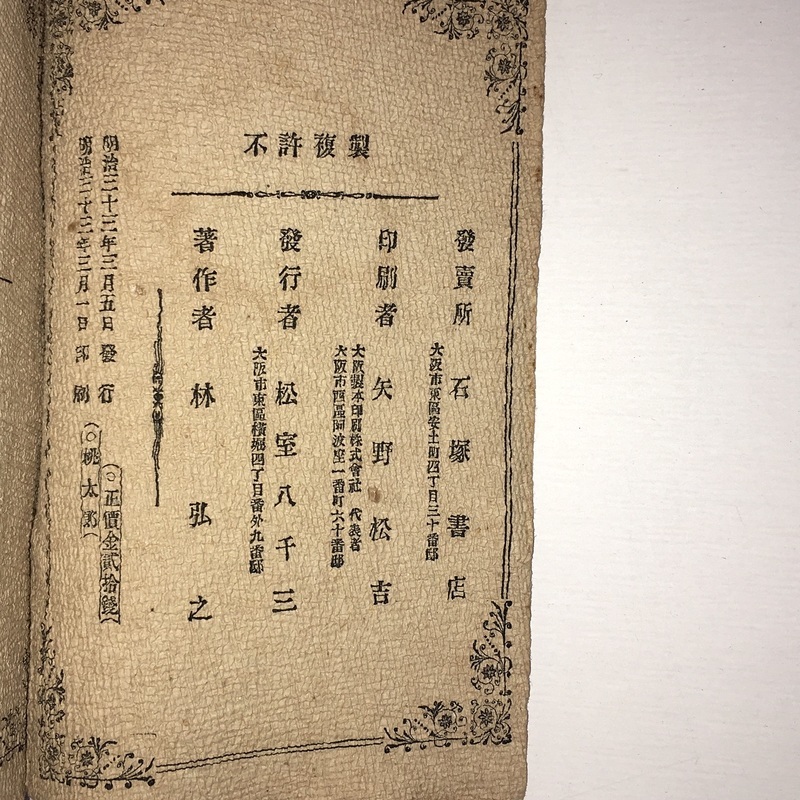 不許複製
明治三十三年三月一日印刷
(○桃太郎)
明治三十三年三月五日發行
(○正價金貳拾錢)
著作者 林弘之
大阪市東區橫堀四丁目番外九番邸
發行者 松室八千三
大阪市西區阿波座一番町六十番邸
大阪製本印刷株式會社 代表者
印刷者 矢野松吉
大阪市東區安土町四丁目三十番邸
發賣所 石塚書店